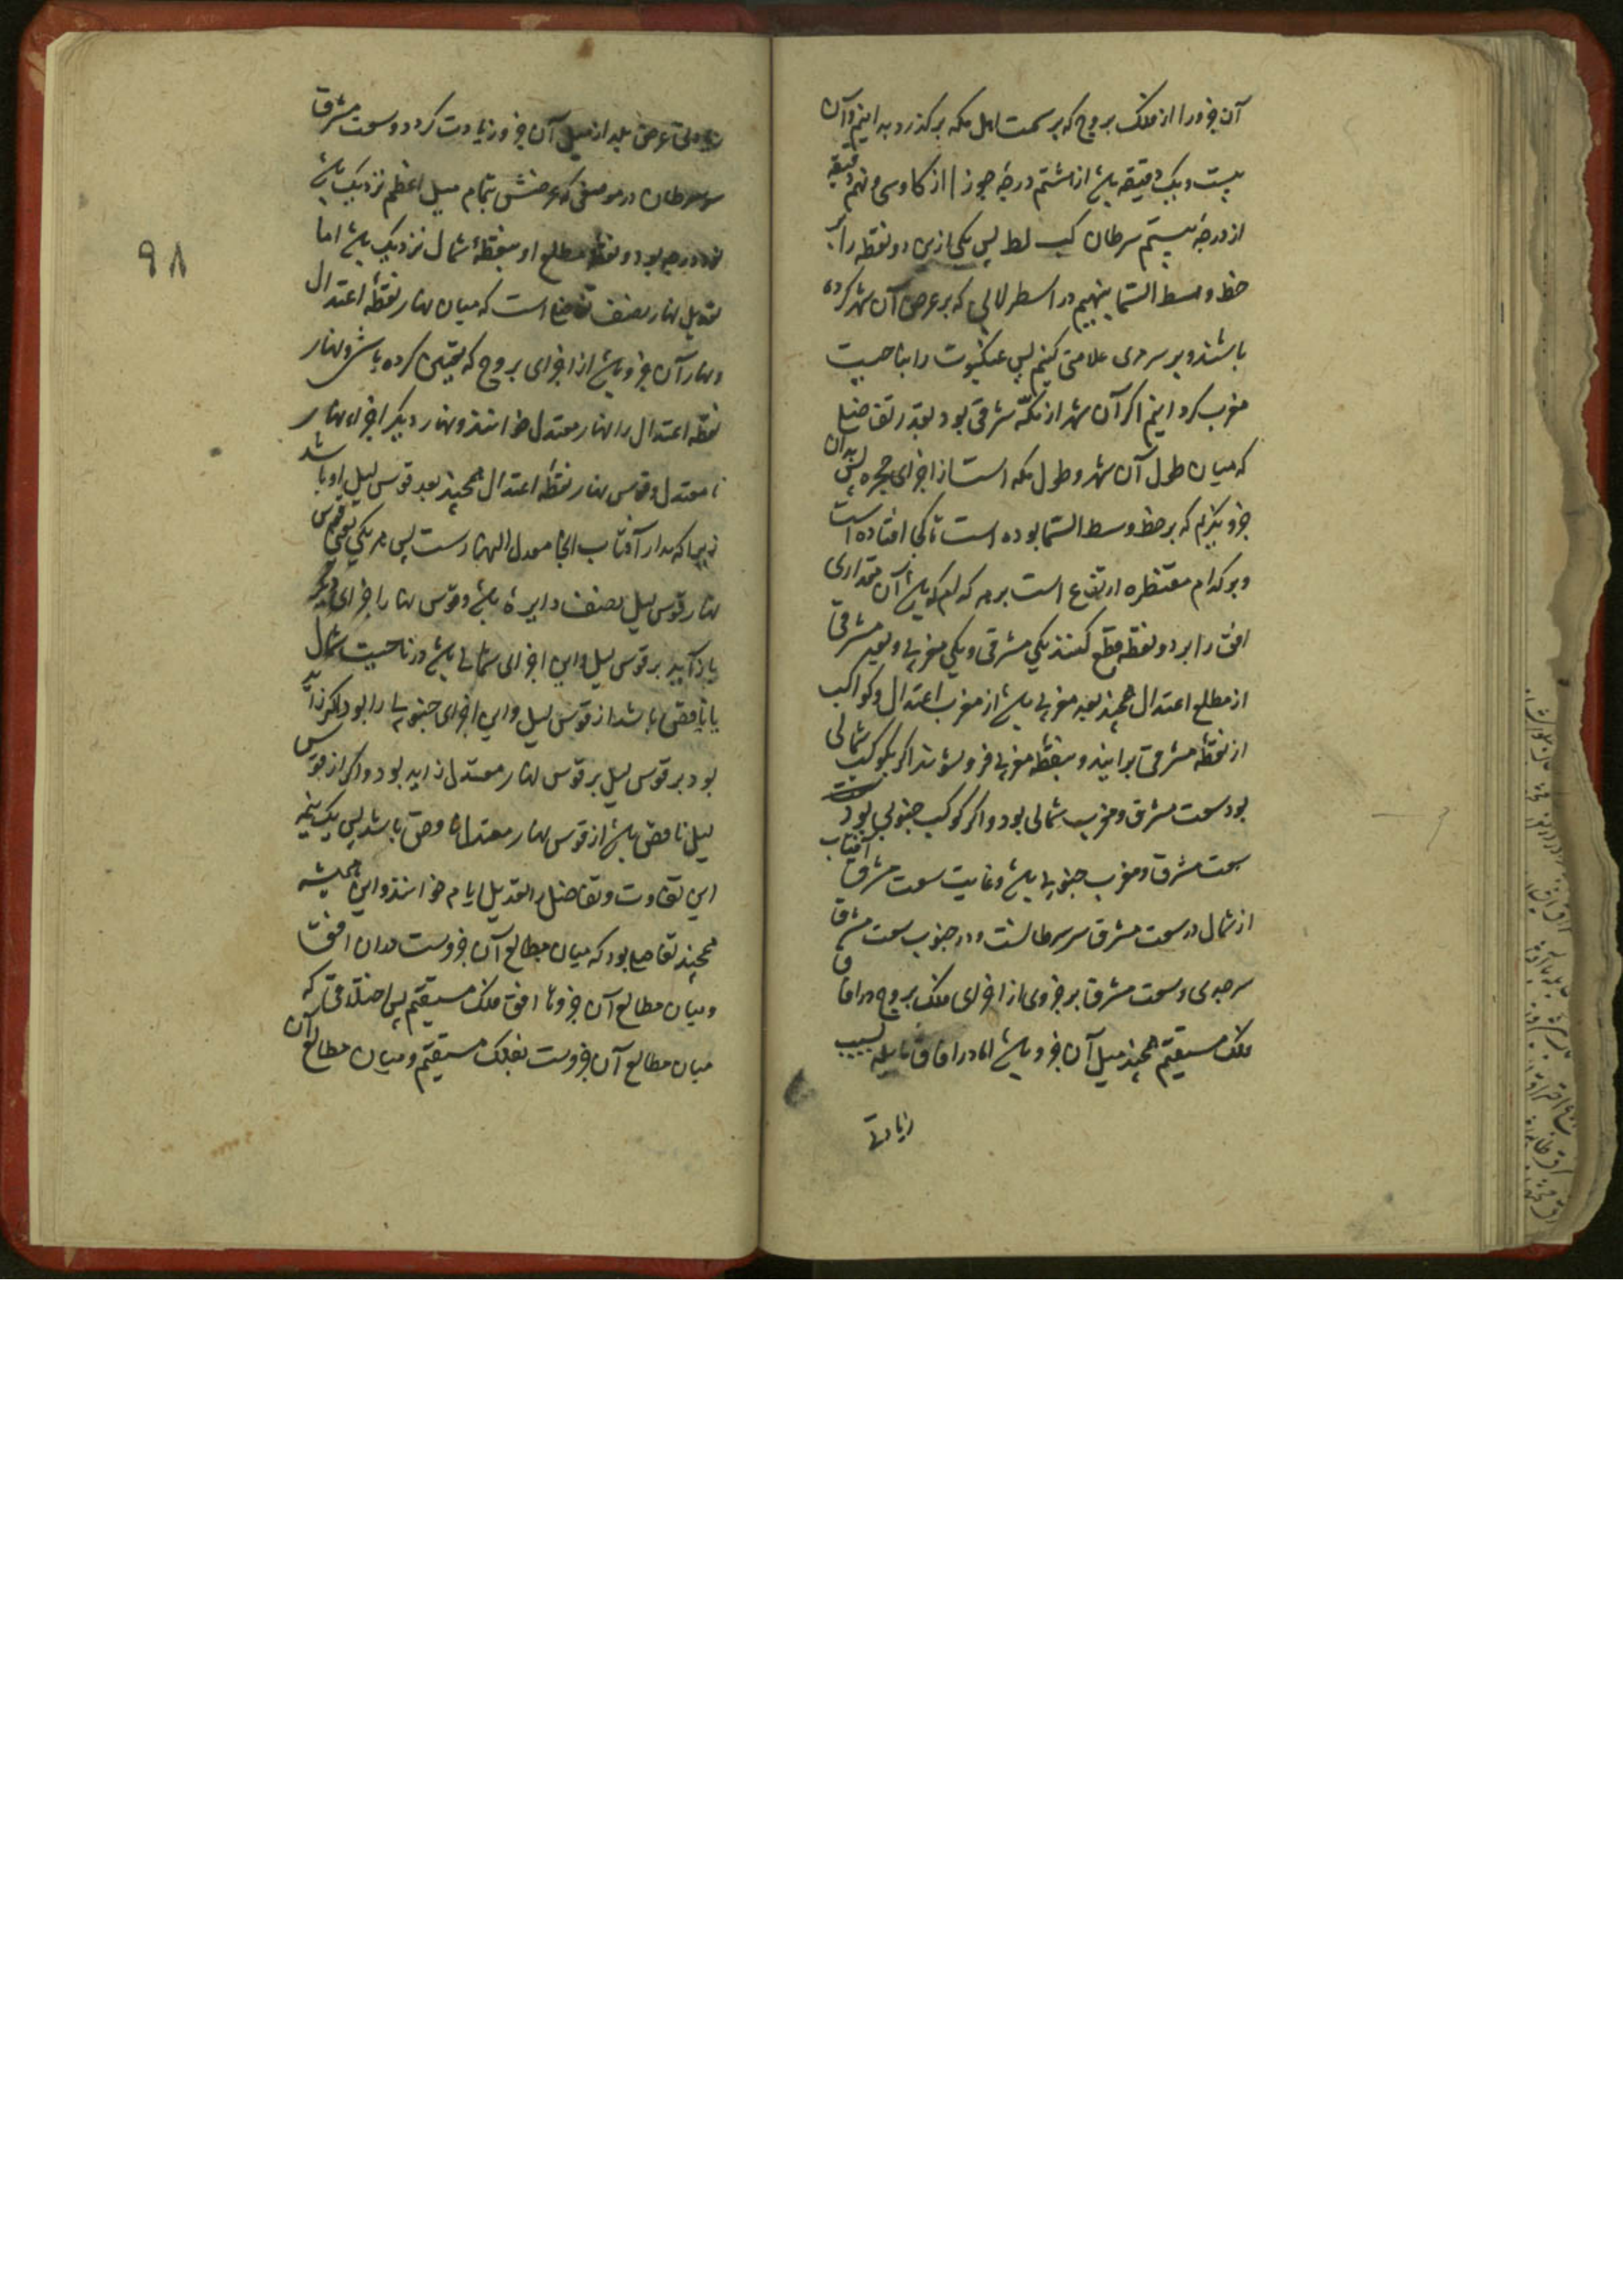 آن جزو را از فلک بروج که بر سمت اهل مکه بر گذرد بدانیم و آن
بیست و یک دقیقه باشد از هشتم درجه جوزا از کا و سی و نهم دقیقه
از درجه بیستم سرطان کب لط پس یکی ازین دو نقطه را بر
خط وسط السما بنهیم در اسطرلابی که بر عرض آن شهر کرده
باشند و بر سر مری علامتی کنیم پس عنکبوت را بناحیت
مغرب کردانیم اکر آن شهر از مکه شرقی بود بقدر تفاضل
که میان طول آن شهر و طول مکه است از اجزای حجره پس بدان
جزو نکریم که بر خط وسط السما بوده است تا کجا افتاده است
و بر کدام مقنطره ارتفاع است بر مقداری
افق را بر دو نقطه قطع کنند یکی مشرقی و یکی مغربی و بعد مشرقی
از مطلع اعتدال همچند بعد مغربی باشد از مغرب اعتدال و کواکب
از نقطه مشرقی برایند و بنقطه مغربی فرو شوند اکر کوکب شمالی
بود سعت مشرق و مغرب شمالی بود و اکر کوکب جنوبی بود
سعت مشرق و مغرب جنوبی باشد و غایت سعت مشرق آفتاب
از شمال در سعت مشرق سر سرطانست و در جنوب سعت مشرق
سر جدی و سعت مشرق هر جزوی از اجزای فلک بروج در افاق
فلک مستقیم همچند میل آن جزو باشد اما در افاق مایله بسبب
زیادتی
۹۸
زیادتی عرض بلد از میل آن جزو زیادت کردد و سعت مشرق
سر سرطان در موضعی که عرضش بتمام میل اعظم نزدیک باشد
نود درجه بود و نقطه مطلع او بنقطه شمال نزدیک باشد اما
تعدیل نهار نصف تفاضل است که میان نهار نقطه اعتدال
و نهار آن جزو باشد از اجزای بروج که تعیین کرده باشند و نهار
نقطه اعتدال را نهار معتدل خوانند و نهار دیکر اجزاء نهار
نا معتدل و قوس نهار نقطه اعتدال همچند بعد قوس لیل او باشد
زیرا که مدار آفتاب آنجا معدل النهار ست پس هر یکی یعنی قوس
نهار قوس لیل نصف دایره باشد و قوس نهار اجزای دیکر
یا زاید بر قوس لیل و این اجزای شمالی باشد در ناحیت شمال
یا ناقص باشد از قوس لیل و این اجزای جنوبی را بود و اکر زاید
بود بر قوس لیل بر قوس نهار معتدل زاید بود و اکر از قوس
لیل ناقص باشد از قوس نهار معتدل ناقص باشد پس یک نیمه
این تفاوت و تفاضل را تعدیل ایام خوانند و این همیشه
همچند تفاضل بود که میان مطالع آن جزوست بدان افق
و میان مطالع آن جزو با افق فلک مستقیم پس اختلافی که
میان مطالع آن جزوست بفلک مستقیم و میان مطالع آن